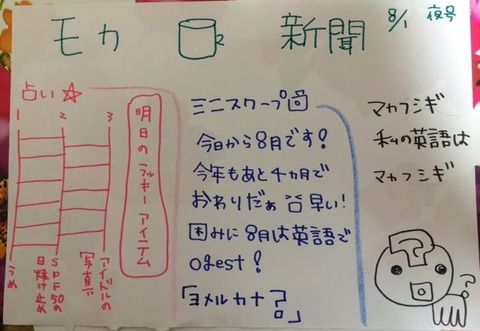 モカ 新聞 8/1 夜号
占い☆
1 2 3
明日のラッキーアイテム
アイドルの
写真
SPF50の
日焼け止め
うめ
ミニスクープ
今日から8月です!
今年もあと4カ月で
おわりだぁ 早い!
困みに8月は英語で
ogest!
「ヨメルカナ?」
マカフシギ
私の英語は
マカフシギ
?
?